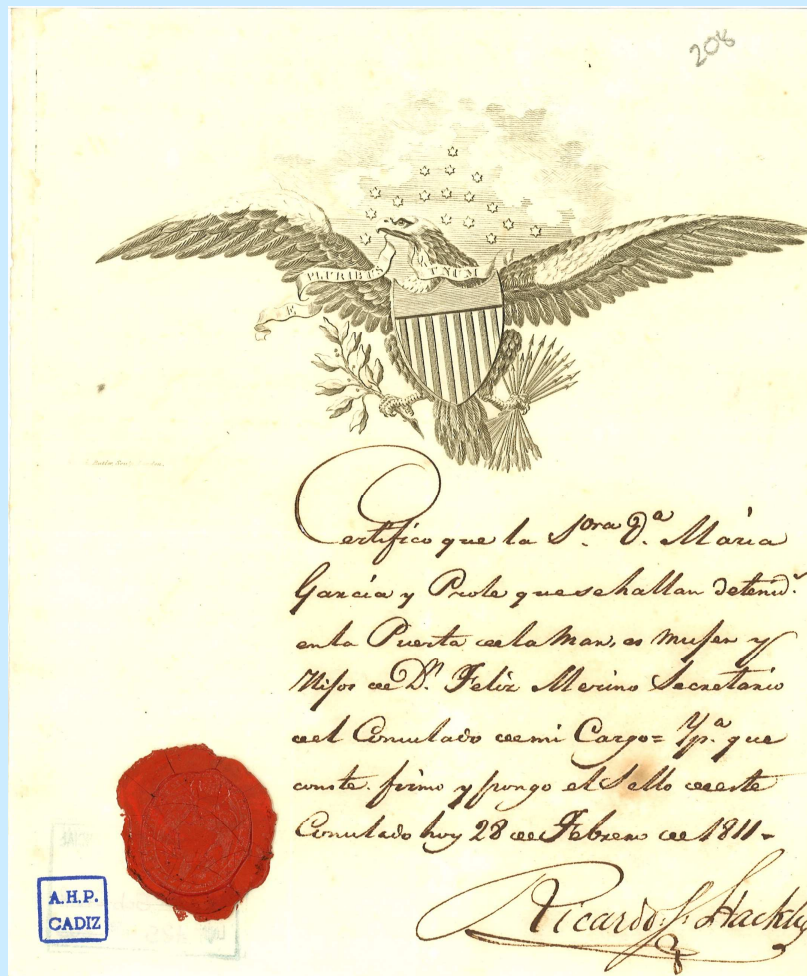 208
E PLURIBUS UNUM
Certifico que la S.ora D.a Maria
Garcia y Prole que se hallan detenid.s
en la Puerta de la Mar, es Muger y
Hijos de D.n Feliz Merino Secretario
del Consulado de mi Cargo = Y p.a que
conste firmo y pongo el Sello de este
Consulado hoy 28 de Febrero de 1811 =
Ricardo S. Hackley
A.H.P.
CADIZ